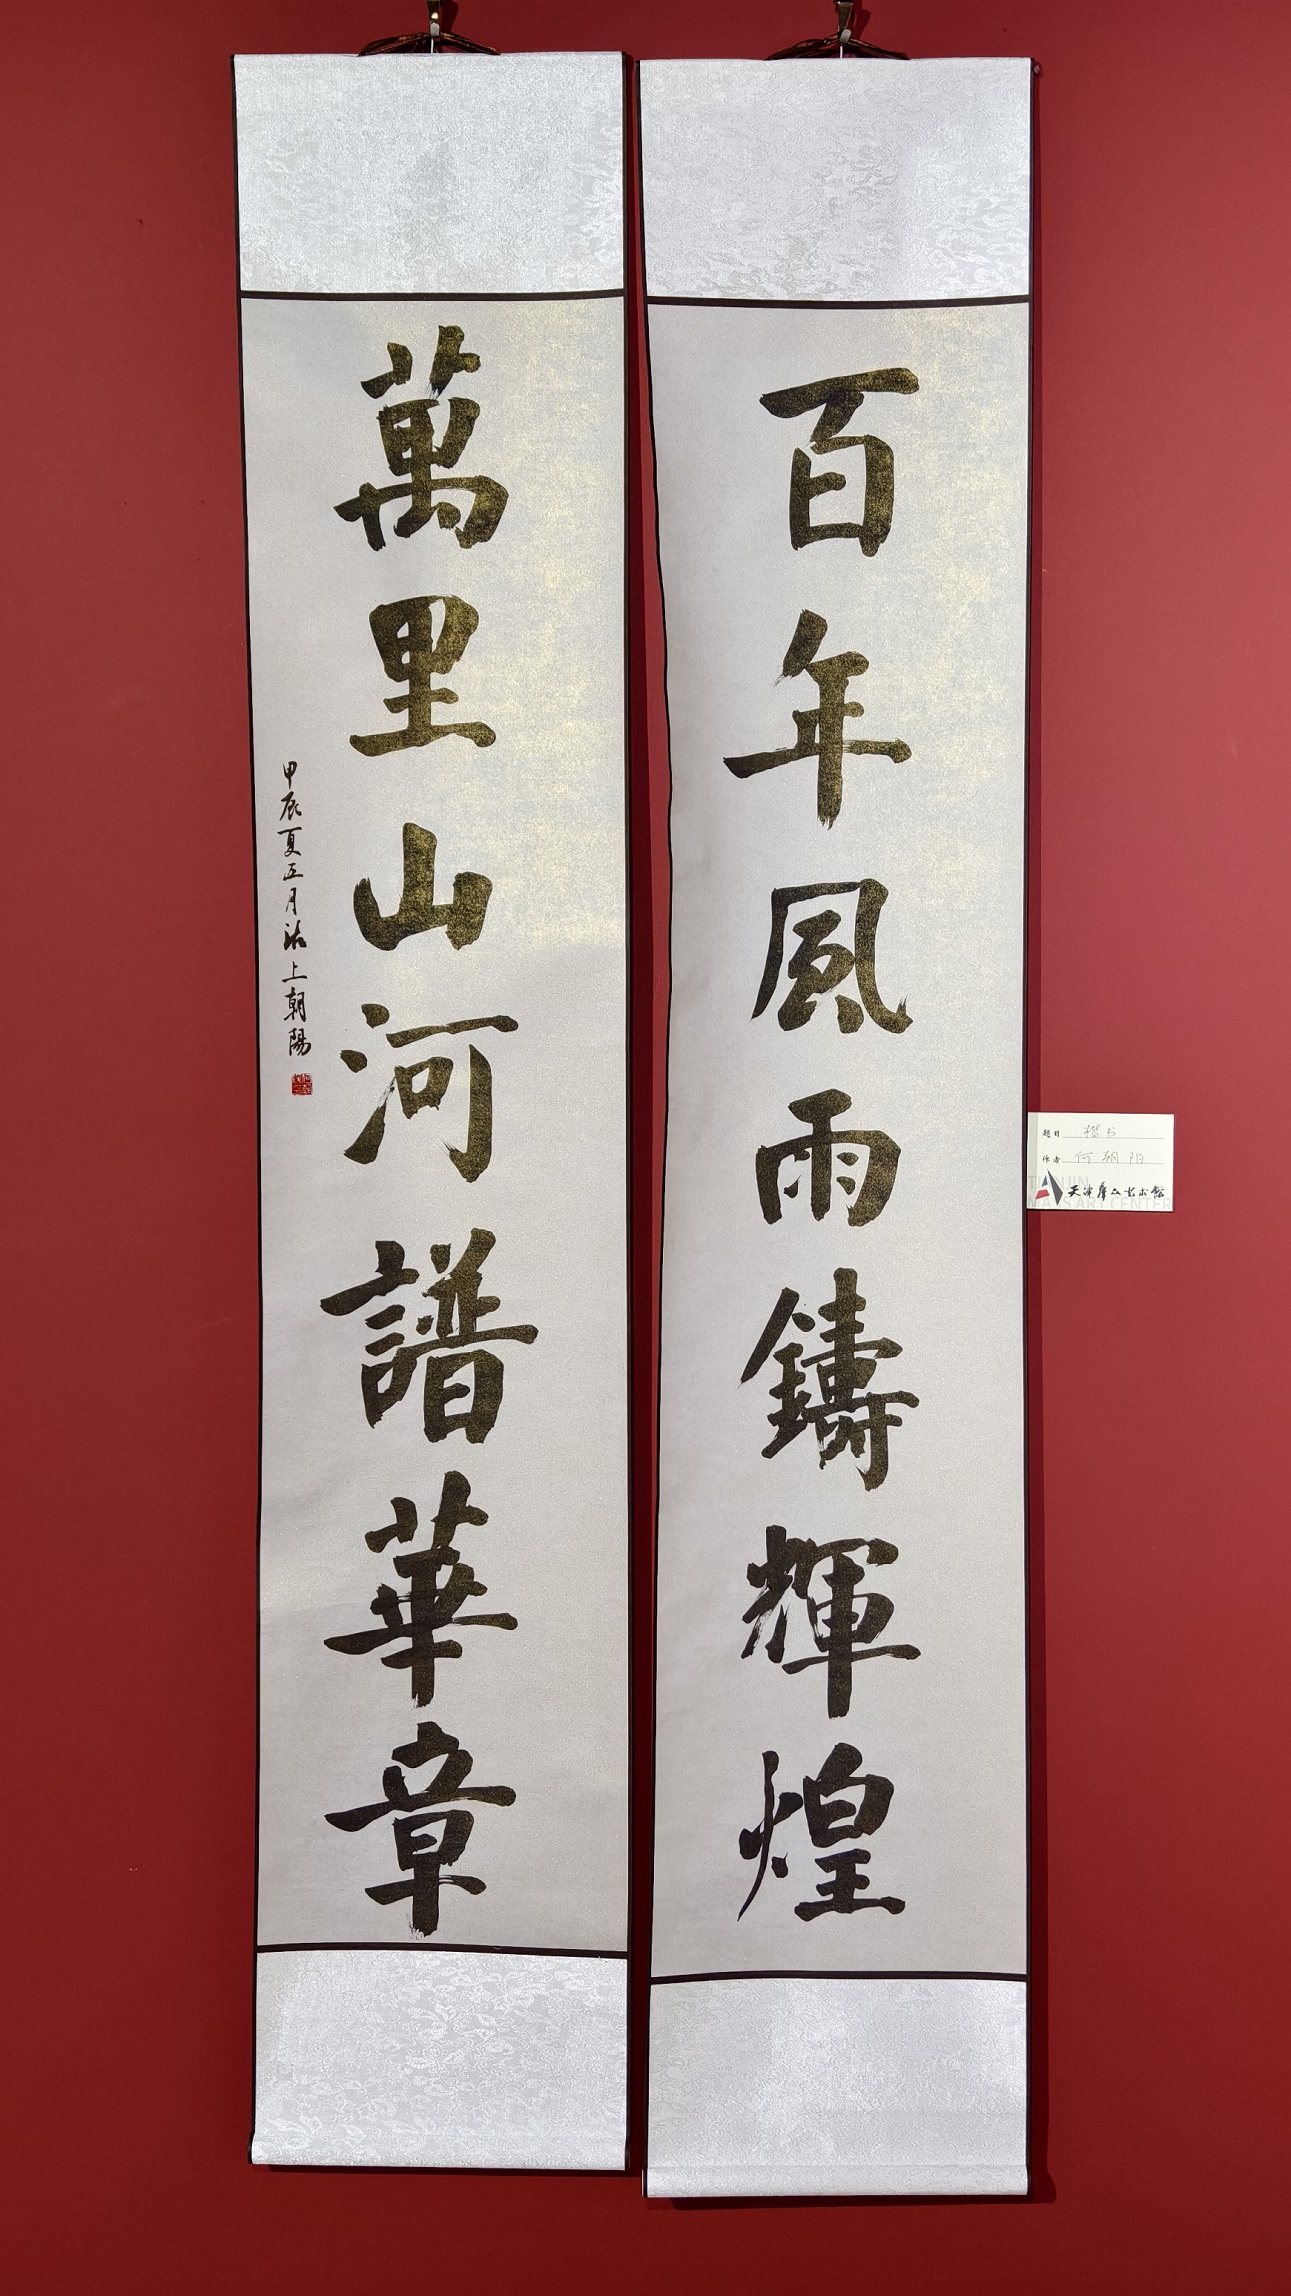 百年風雨鑄輝煌
萬里山河譜華章
甲辰夏五月沽上朝陽
题目 楷书
作者 何朝阳
天津群众艺术馆
TIANJIN
MASS ART CENTER